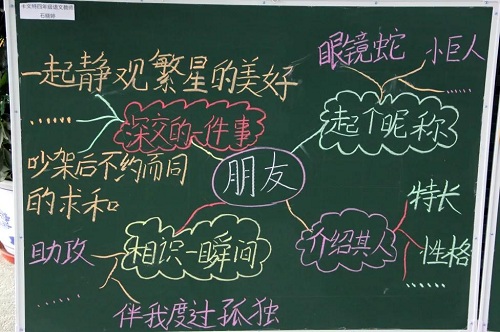 眼镜蛇
小巨人
一起静观繁星的美好
......
深交的一件事
起个昵称
......
吵架后不约而同
的求和
朋友
特长
助攻
相识一瞬间
介绍其人
性格
......
......
伴我度过孤独